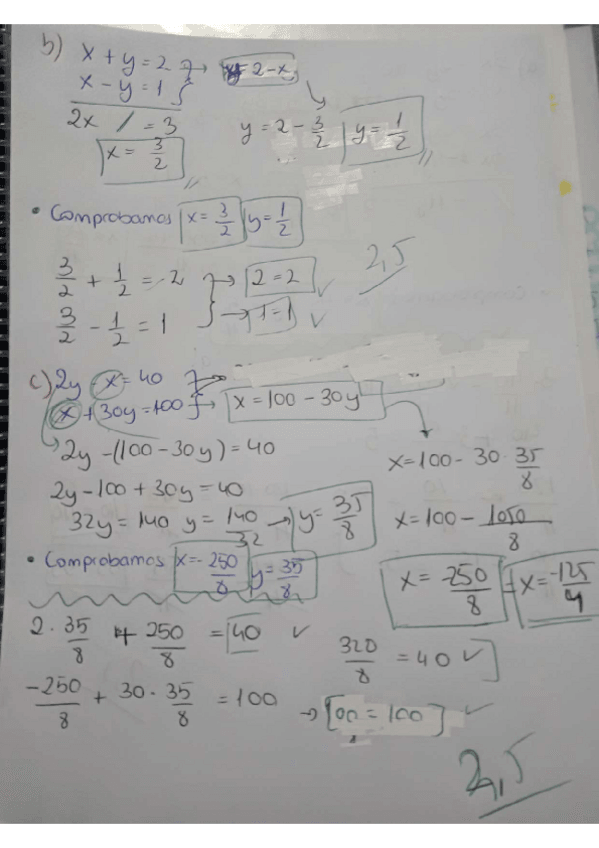 b) x + y = 2 → y = 2 - x
x - y = 1
2x / = 3
y = 2 - 3/2 y = 1/2
x = 3/2
• Comprobamos x = 3/2 y = 1/2
3/2 + 1/2 = 2 → 2 = 2 ✓
3/2 - 1/2 = 1 → 1 = 1 ✓
2,5
c) 2y - x = 40
x + 30y = 100 → x = 100 - 30y
2y - (100 - 30y) = 40
x = 100 - 30 · 35/8
2y - 100 + 30y = 40
32y = 140 y = 140/32 → y = 35/8
x = 100 - 1050/8
• Comprobamos x = -250/8 y = 35/8
x = -250/8 = x = -125/4
2 · 35/8 + 250/8 = 40 ✓
320/8 = 40 ✓
-250/8 + 30 · 35/8 = 100 → 100 = 100 ✓
2,5